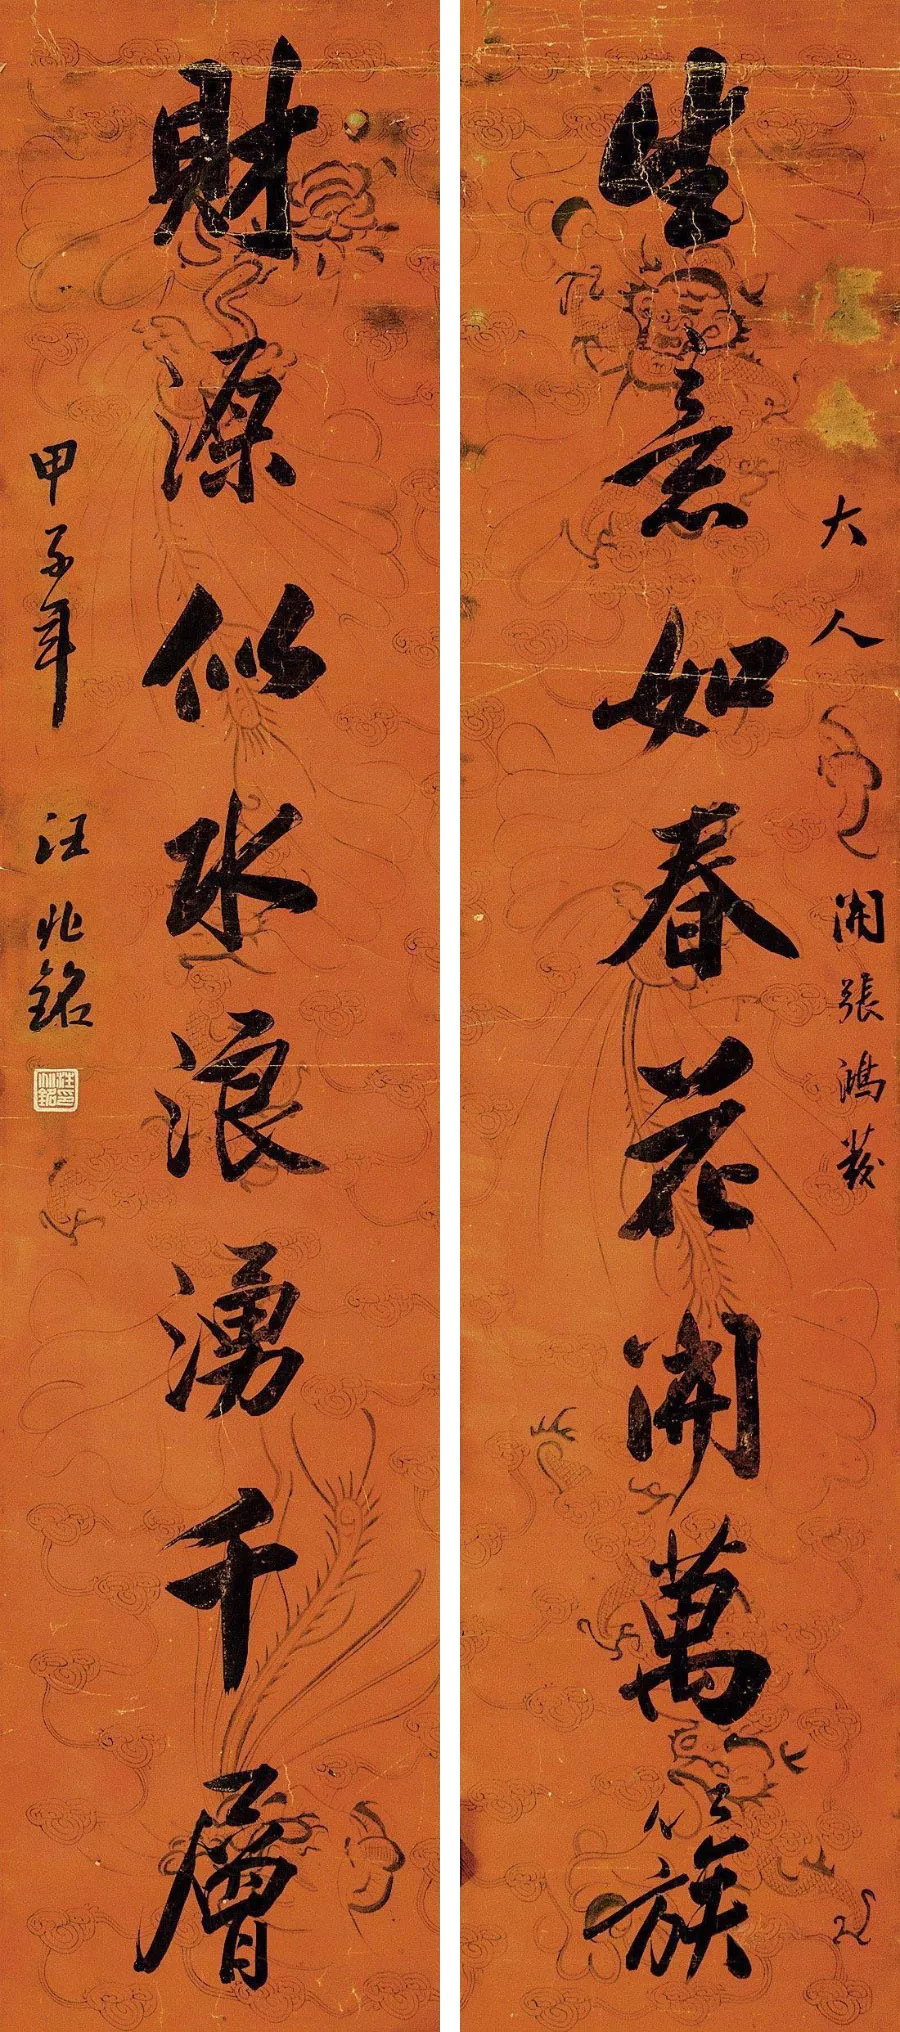 大人 開張鴻發
生意如春花開萬簇
財源似水浪湧千層
甲子年 汪兆銘